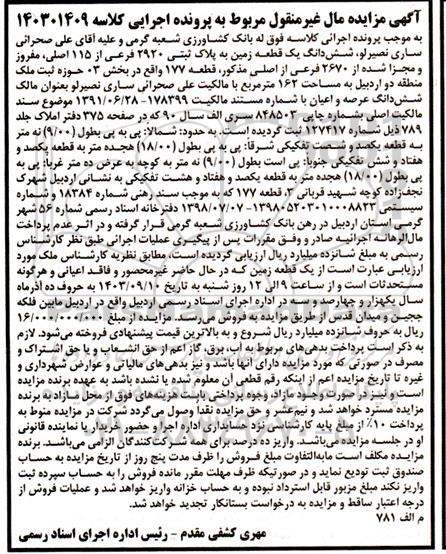 آگهی مزایده مال غیرمنقول مربوط به پرونده اجرایی کلاسه ۱۴۰۳۰۱۴۰۹
به موجب پرونده اجرائی کلاسه فوق له بانک کشاورزی شعبه گرمی و علیه آقای علی صحرائی
ساری نصیرلو، شش‌دانگ یک قطعه زمین به پلاک ثبتی ۲۹۲۰ فرعی از ۱۱۵ اصلی، مفروز
و مجزا شده از ۲۶۷۰ فرعی از اصلی مذکور، قطعه ۱۷۷ واقع در بخش ۰۳ حوزه ثبت ملک
منطقه دو اردبیل به مساحت ۱۶۲ مترمربع با مالکیت علی صحرائی ساری نصیرلو بعنوان مالک
شش‌دانگ عرصه و اعیان با شماره مستند مالکیت ۱۷۸۳۹۹-۱۳۹۱/۰۶/۲۸ موضوع سند
مالکیت اصلی بشماره چاپی ۸۴۸۵۰۳ سری الف سال ۹۰ که در صفحه ۳۷۵ دفتر املاک جلد
۷۸۹ ذیل شماره ۱۲۷۴۱۷ ثبت گردیده است. به حدود: شمالا: پی به پی بطول (۹/۰۰) نه متر
به قطعه یکصد و شصت تفکیکی شرقا: پی به پی بطول (۱۸/۰۰) هجده متر به قطعه یکصد و
هفتاد و شش تفکیکی جنوبا: پی است بطول (۹/۰۰) نه متر به کوچه به عرض ده متر غربا: پی به
پی بطول (۱۸/۰۰) هجده متر به قطعه یکصد و هفتاد و هشت تفکیکی به نشانی اردبیل شهرک
نجف‌زاده کوچه شهید قربانی ۳، قطعه ۱۷۷ که به موجب سند رهنی شماره ۱۸۳۸۴ و شماره
سیستمی ۱۳۹۸۰۵۲۰۳۰۱۰۰۰۸۸۲۳-۱۳۹۸/۰۷/۰۷ دفترخانه اسناد رسمی شماره ۵۶ شهر
گرمی استان اردبیل در رهن بانک کشاورزی شعبه گرمی قرار گرفته و در اثر عدم پرداخت
مال‌الرهانه اجرائیه صادر و وفق مقررات پس از پیگیری عملیات اجرائی طبق نظر کارشناس
رسمی به مبلغ شانزده میلیارد ریال ارزیابی گردیده است، مطابق نظریه کارشناس ملک مورد
ارزیابی عبارت است از یک قطعه زمین که در حال حاضر غیرمحصور و فاقد اعیانی و هرگونه
مستحدثات است و از ساعت ۹ الی ۱۲ روز شنبه به تاریخ ۱۴۰۳/۰۹/۱۰ به حروف ده آذرماه
سال یکهزار و چهارصد و سه در اداره اجرای اسناد رسمی اردبیل واقع در اردبیل مابین فلکه
ججین و میدان قدس از طریق مزایده به فروش می‌رسد. مزایده از مبلغ ۱۶/۰۰۰/۰۰۰/۰۰۰
ریال به حروف شانزده میلیارد ریال شروع و به بالاترین قیمت پیشنهادی فروخته می‌شود. لازم
به ذکر است پرداخت بدهی‌های مربوط به آب، برق، گاز اعم از حق انشعاب و یا حق اشتراک و
مصرف در صورتی که مورد مزایده دارای آنها باشد و نیز بدهی‌های مالیاتی و عوارض شهرداری و
غیره تا تاریخ مزایده اعم از اینکه رقم قطعی آن معلوم شده یا نشده باشد به عهده برنده مزایده
است و نیز در صورت وجود مازاد، وجوه پرداختی بابت هزینه‌های فوق از محل مازاد به برنده
مزایده مسترد خواهد شد و نیم‌عشر و حق مزایده نقدا وصول می‌گردد شرکت در مزایده منوط به
پرداخت ۱۰٪ از مبلغ پایه کارشناسی نزد حسابداری اداره اجرا و حضور خریدار یا نماینده قانونی
او در جلسه مزایده می‌باشد. واریز ده درصد برای همه شرکت‌کنندگان الزامی می‌باشد. برنده
مزایده مکلف است مابه‌التفاوت مبلغ فروش را ظرف مدت پنج روز از تاریخ مزایده به حساب
صندوق ثبت تودیع نماید و در صورتیکه ظرف مهلت مقرر مانده فروش را به حساب سپرده ثبت
واریز نکند مبلغ مزبور قابل استرداد نبوده و به حساب خزانه واریز خواهد شد و عملیات فروش از
درجه اعتبار ساقط و مزایده به درخواست بستانکار تجدید خواهد شد.
م الف ۷۸۱
مهری کشفی مقدم - رئیس اداره اجرای اسناد رسمی